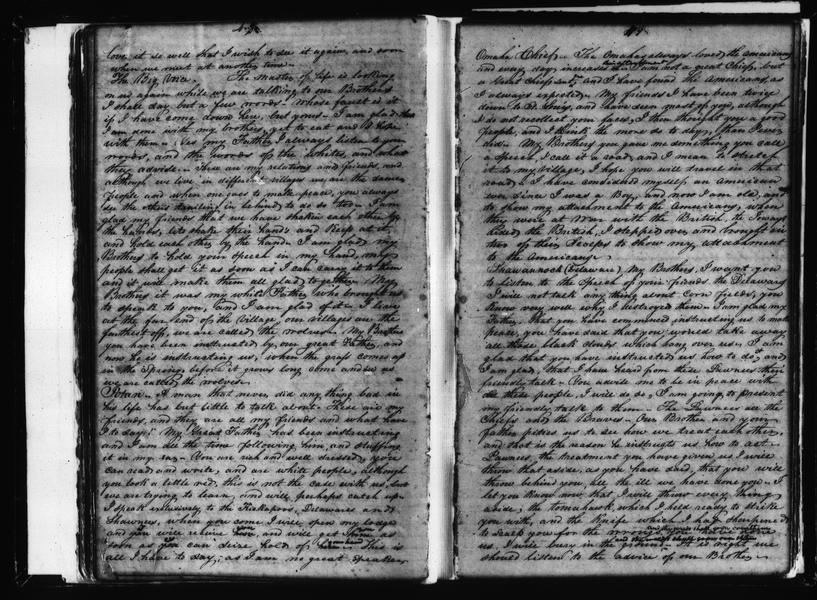 love it so well that I wish to see it again, and soon
when we meet at another time.
The Big Axe. The master of life is looking
on us again while we are talking to our Brothers
I shall say but a few words. Whose fault is it
if I have come down here, but yours. I am glad
I am done with my brothers, yet to eat and
with them. Yes my Father I always listen to your
words, and the words of the whites, and
they advise. These are my relations and friends and
although we live in different villages we are the same
people and when one goes to make peace, you always
see the others in behind, to do so too. I am
glad my friends that we have shaken each other by
the hands, lets shake them hard and keep at it,
and hold each other by the hand. I am glad my
Brothers to hold your speech in my hand, my
people shall get it as soon as I can carry it to them
and it will make them all glad together. My
Brothers it was my white Father who brought us
to speak to you, and I am glad of it. I live
at the far end of the village, our villages are the
farthest off, we are called the wolves. My Brothers
you have been instructed by our great Father, and
now he is instructing us, when the grass comes up
in the Spring before it grows long come and see us
we are called the wolves.
Ietan. A man that never did any thing bad in
his life has but little to talk about. These are my
friends, and they are all my friends and what have
I to say? My Great Father has been instructing
and I am all the time following him, and stuffing
it in my ear. You are rich and well dressed, you
can read and write, and are white people, although
you look a little red, this is not the case with us, but
we are trying to learn, and will perhaps catch up.
I speak exclusively to the Kickapoos, Delawares and
Shawnees, when you come I will open my lodge
and you will receive and will get from as
soon as you can seize hold of This is
all I have to say, as I am no great speaker.
Omaha Chief. The Omahas always loved the Americans
and every day increases it. I am not a great Chief, but
a great chief sent, and I have found the Americans, as
I always expected. My friends I have been twice
down to St. Louis, and have seen most of you, although
I do not recollect your faces, I then thought you a good
people, and I think the more so to day, than I ever
did. My Brothers you gave me something you call
a speech, I call it a road, and I mean to stretch
it to my village, I hope you will travel in that
road. I have considered myself an American
ever since I was a Boy, and now I am old, and
to show my attachment to the Americans, when
they were at War with the British, the Ioways
aided the British, I stepped over and brought in
two of their scalps to show my attachment
to the Americans.
Shawannock (Delaware) My Brothers, I want you
to listen to the speech of your friends the Delawares
I will not talk any thing about Corn fields, you
know very well why I destroyed them. I am glad my
Father, that you have commenced instructing us to make
peace, you have said that you would take away
all those black clouds which hong over us. I am
glad that you have instructed us how to do, and
I am glad, that I have heard from these Pawnees their
friendly talk. You advise me to be in peace with
all these people, I will do so, I am going to present
my friendly talk to them. The Pawnees are the
Chiefs and the Braves. Our Brother and your
father invites us to see how we treat each other,
and that is the reason he instructs us how to act.
Pawnees, the treatment you have given us I will
throw that aside, as you have said, that you will
throw behind you, all the ill we have done you. I
let you know now that I will throw every thing
aside, the tomahawk, which I held ready to strike
you with, and the knife which I had sharpened
to scalp you for the injury you have done
us I will bury in the ground. It is right we
should listen to the advice of our Brother